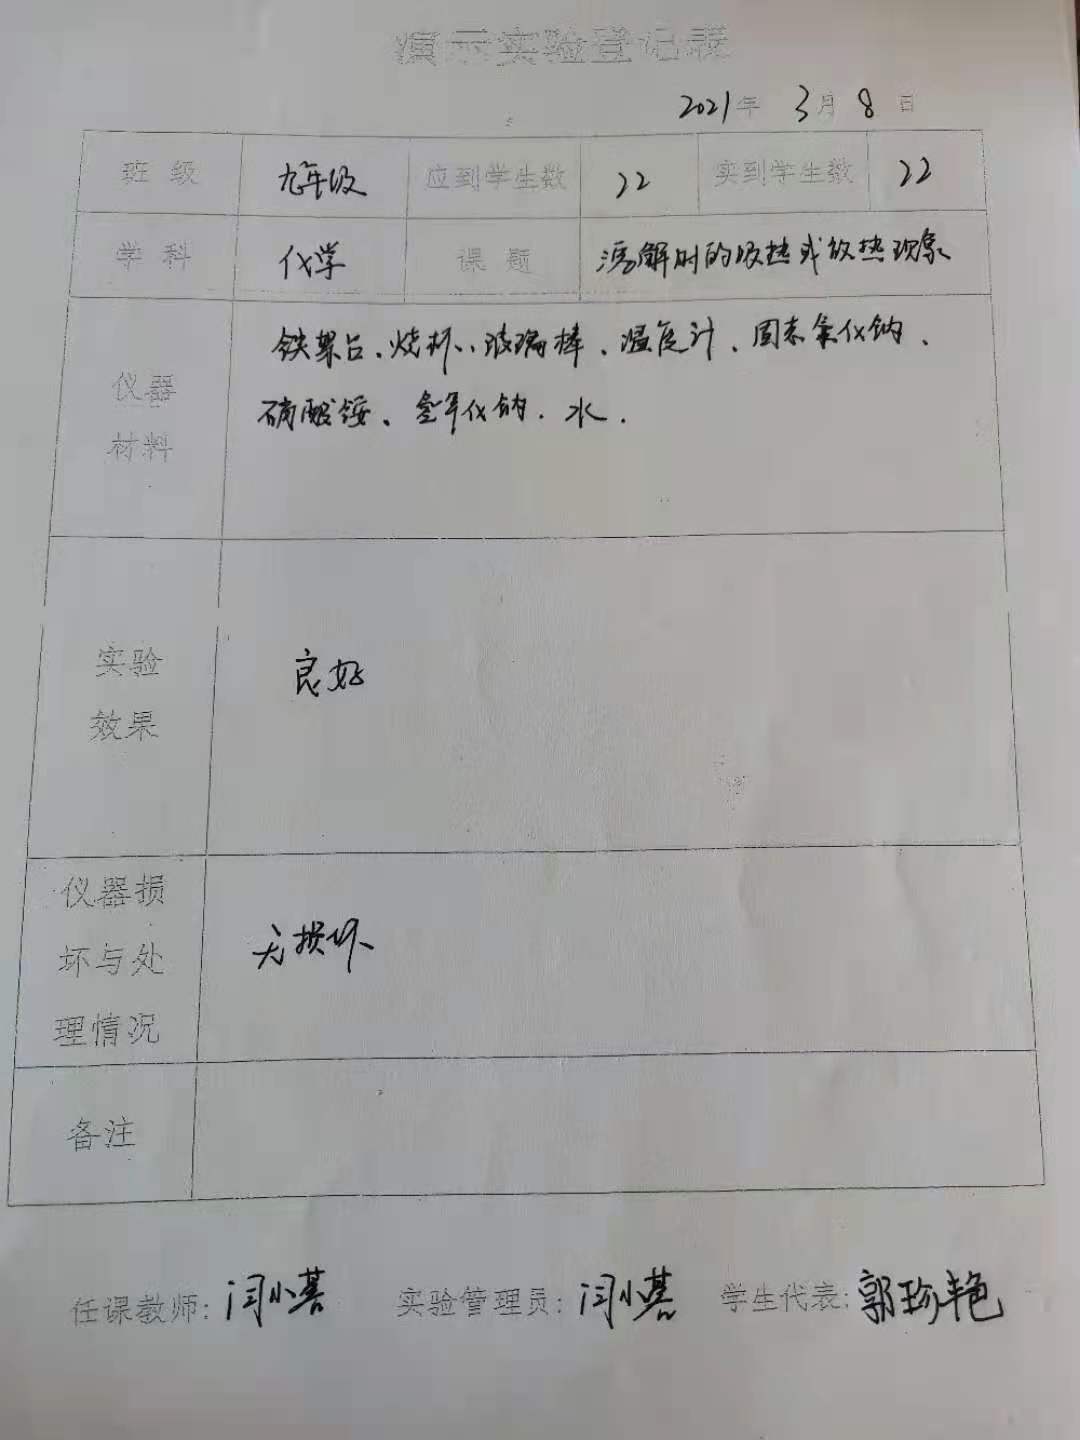 演示实验登记表
2021年 3月 8日
班级 九年级 应到学生数 22 实到学生数 22
学科 化学 课题 溶解时的吸热或放热现象
仪器材料
铁架台、烧杯、玻璃棒、温度计、固态氯化钠、
硝酸铵、氢氧化钠、水.
实验效果
良好
仪器损坏与处理情况
无损坏
备注
任课教师: 闫小 实验管理员: 闫小 学生代表: 郭珍艳